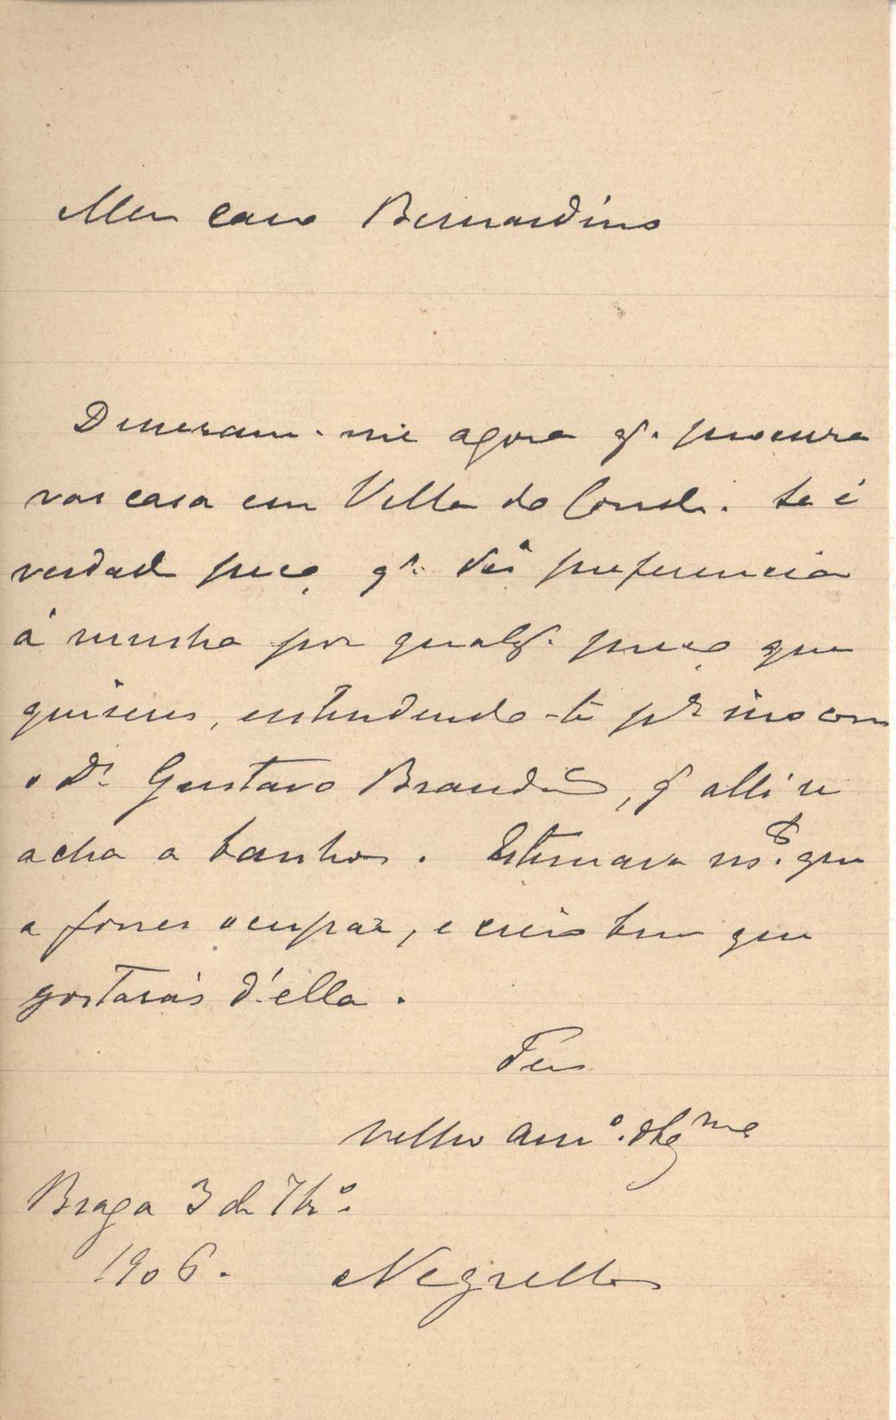 Meu caro Bernardino
Disseram-me agora q. procura
vas casa em Villa do Conde. Se é
verdade peço q. dês preferencia
á minha por qualq. preço que
quiseres, entendendo-te pª isso com
o Dr. Gustavo Brandão, q alli se
acha a banhos. Estimava mto. que
a fosses ocupar, e creio bem que
gostarás d'ella.
Teu
velho amº.
Braga 3 de 7brº.
1906. Negrellos